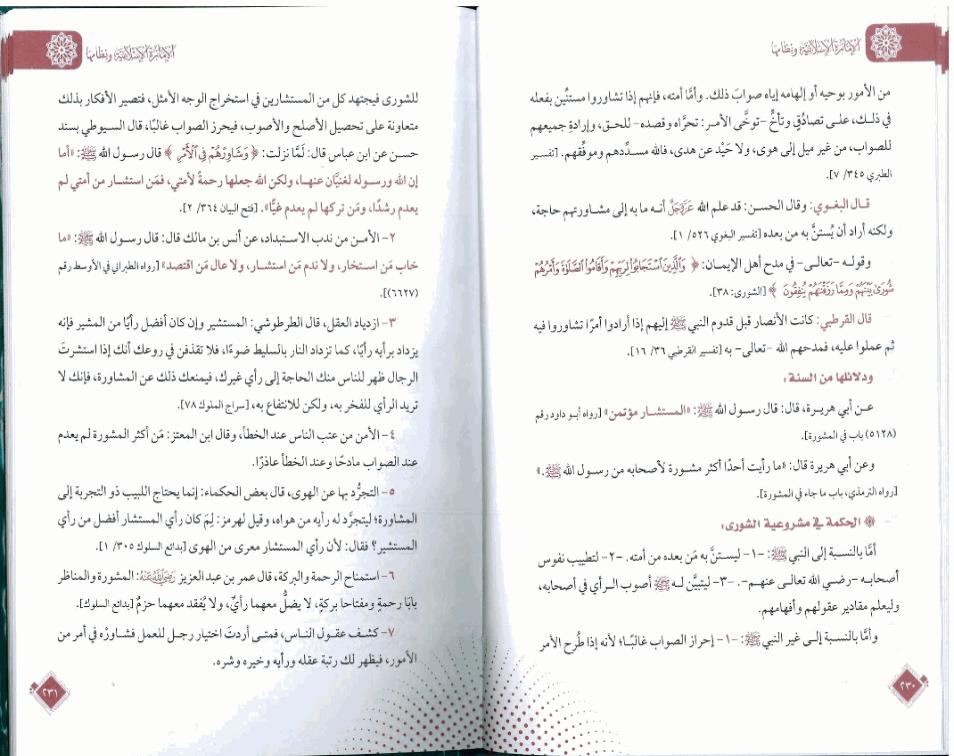 الإمارة الإسلامية ونظامها
من الأمور بوحيه أو إلهامه إياه صوابَ ذلك. وأمَّا أمته، فإنهم إذا تشاوروا مستنِّين بفعله
في ذلك، على تصادُقٍ وتأخٍّ -توخَّي الأمر: تحرَّاه وقصده- للحق، وإرادةِ جميعهم
للصواب، من غير ميل إلى هوى، ولا حَيْد عن هدى، فالله مسدِّدهم وموفِّقهم. [تفسير
الطبري ٣٤٥/ ٧].
قال البغوي: وقال الحسن: قد علم الله عَزَّوَجَلَّ أنه ما به إلى مشاورتهم حاجة،
ولكنه أراد أن يُستنَّ به من بعده [تفسير البغوي ٥٢٦/ ١].
وقوله -تعالى- في مدح أهل الإيمان: ﴿ وَٱلَّذِينَ ٱسْتَجَابُوا۟ لِرَبِّهِمْ وَأَقَامُوا۟ ٱلصَّلَوٰةَ وَأَمْرُهُمْ
شُورَىٰ بَيْنَهُمْ وَمِمَّا رَزَقْنَٰهُمْ يُنفِقُونَ ﴾ [الشورى: ٣٨].
قال القرطبي: كانت الأنصار قبل قدوم النبي ﷺ إليهم إذا أرادوا أمرًا تشاوروا فيه
ثم عملوا عليه، فمدحهم الله -تعالى- به [تفسير القرطبي ٣٦/ ١٦].
ودلائلها من السنة:
عن أبي هريرة، قال: قال رسول الله ﷺ: «المستشار مؤتمن» [رواه أبو داود رقم
(٥١٢٨) باب في المشورة].
وعن أبي هريرة قال: «ما رأيت أحدًا أكثر مشورة لأصحابه من رسول الله ﷺ.»
[رواه الترمذي، باب ما جاء في المشورة].
الحكمة في مشروعية الشورى:
أمَّا بالنسبة إلى النبي ﷺ: -١- ليستنَّ به مَن بعده من أمته. -٢- لتطييب نفوس
أصحابه -رضي الله تعالى عنهم-. -٣- ليتبيَّن له ﷺ أصوب الرأي في أصحابه،
وليعلم مقادير عقولهم وأفهامهم.
وأمَّا بالنسبة إلى غير النبي ﷺ: -١- إحراز الصواب غالبًا؛ لأنه إذا طُرح الأمر
٢٣٠
الإمارة الإسلامية ونظامها
للشورى فيجتهد كل من المستشارين في استخراج الوجه الأمثل، فتصير الأفكار بذلك
متعاونة على تحصيل الأصلح والأصوب، فيحرز الصواب غالبًا، قال السيوطي بسند
حسن عن ابن عباس قال: لَمَّا نزلت: ﴿ وَشَاوِرْهُمْ فِى ٱلْأَمْرِ ﴾ قال رسول الله ﷺ: «أما
إن الله ورسوله لغنيَّان عنها، ولكن الله جعلها رحمةً لأمتي، فمَن استشار من أمتي لم
يعدم رشدًا، ومَن تركها لم يعدم غيًّا». [فتح البيان ٣٦٤/ ٢].
٢- الأمن من ندب الاستبداد، عن أنس بن مالك قال: قال رسول الله ﷺ: «ما
خاب مَن استخار، ولا ندم مَن استشار، ولا عال مَن اقتصد» [رواه الطبراني في الأوسط رقم
(٦٦٢٧)].
٣- ازدياد العقل، قال الطرطوشي: المستشير وإن كان أفضل رأيًا من المشير فإنه
يزداد برأيه رأيًا، كما تزداد النار بالسليط ضوءًا، فلا تقذفن في روعك أنك إذا استشرتَ
الرجال ظهر للناس منك الحاجة إلى رأي غيرك، فيمنعك ذلك عن المشاورة، فإنك لا
تريد الرأي للفخر به، ولكن للانتفاع به، [سراج الملوك ٧٨].
٤- الأمن من عتب الناس عند الخطأ، وقال ابن المعتز: مَن أكثر المشورة لم يعدم
عند الصواب مادحًا وعند الخطأ عاذرًا.
٥- التجرُّد بها عن الهوى، قال بعض الحكماء: إنما يحتاج اللبيب ذو التجربة إلى
المشاورة؛ ليتجرَّد له رأيه من هواه، وقيل لهرمز: لِمَ كان رأي المستشار أفضل من رأي
المستشير؟ فقال: لأن رأي المستشار معرى من الهوى [بدائع السلوك ٣٠٥/ ١].
٦- استمناح الرحمة والبركة، قال عمر بن عبد العزيز رَضِيَ اللهُ عَنْهُ: المشورة والمناظر
بابَا رحمةٍ ومفتاحا بركةٍ، لا يضلُّ معهما رأيٌ، ولا يُفقد معهما حزمٌ [بدائع السلوك].
٧- كشف عقول الناس، فمتى أردتَ اختيار رجل للعمل فشاورْه في أمر من
الأمور، فيظهر لك رتبة عقله ورأيه وخيره وشره.
٢٣١